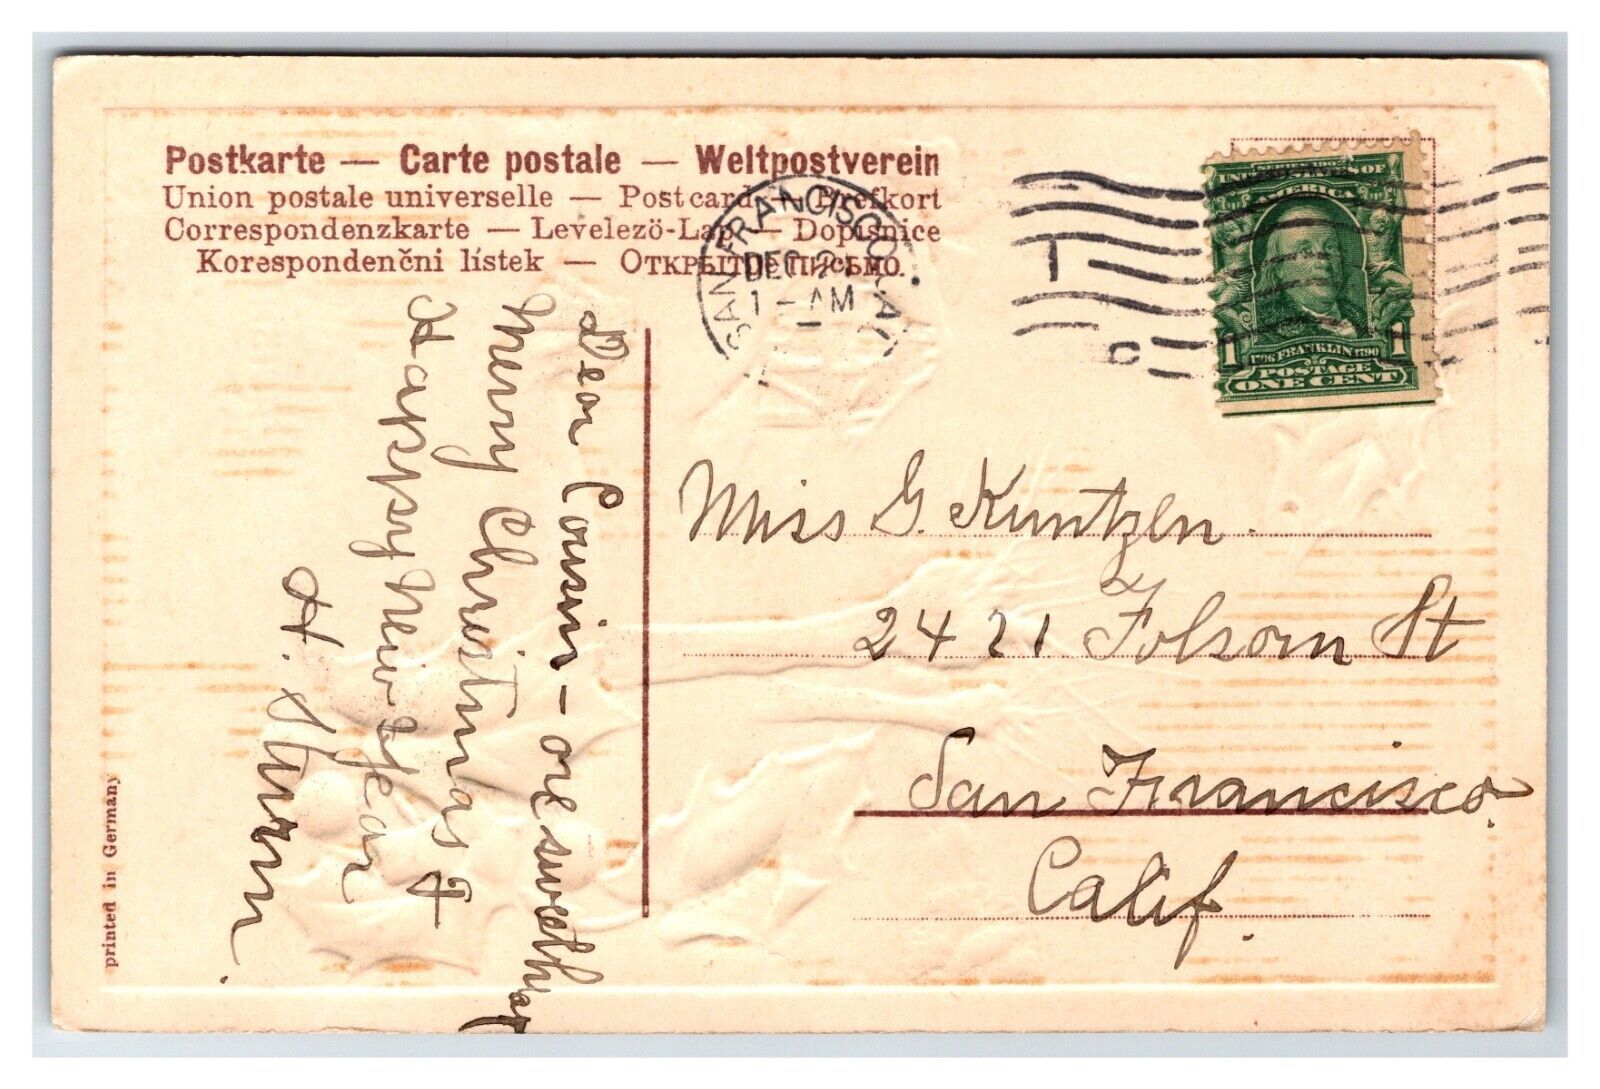 Postkarte — Carte postale — Weltpostverein
Union postale universelle — Postcard — Brefkort
Correspondenzkarte — Levelezö-Lap — Dopisnice
Korespondenčni lístek — Открытое письмо.
SAN FRANCISCO, CAL.
DEC 2
1 - AM
1
SERIES 1902
UNITED STATES OF
AMERICA
1 1706 FRANKLIN 1790 1
POSTAGE
ONE CENT
Dear Cousin – or sweethart
Merry Christmas &
Happy New Year
H. Sturm.
Miss G. Kuntzen.
2421 Folsom St
San Francisco.
Calif.
printed in Germany